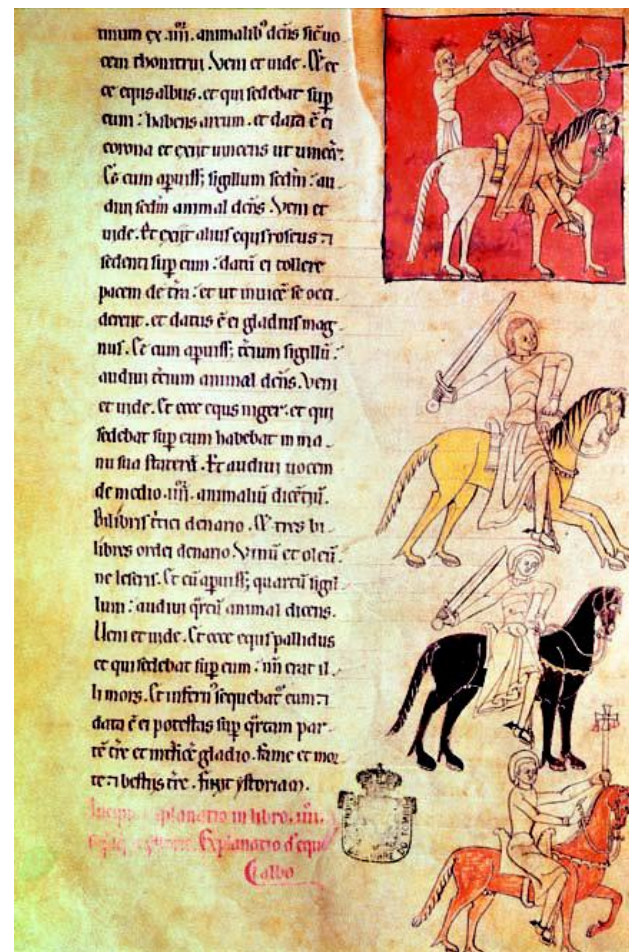 tuum ex .iiii. animalib' dc̄ns sic̄ uo
cem thonitrui. Veni et uide. Et ec
ce equs albus. et qui sedebat sup
eum: habens arcum. et data ē ei
corona et exiit uincens ut uincer̄.
Et cum aperuiss; sigillum sedm̄: au-
diui sedm̄ animal dc̄ns. Veni et
uide. Et exiit alius equs roseus ⁊
sedenti sup eum: datū ei tollere
pacem de tr̄a: et ut inuicē se occi-
derent. et datus ē ei gladius mag
nus. Et cum aperuiss; tc̄ium sigillū:
audiui tc̄ium animal dc̄ns. Veni
et uide. Et ecce equs niger: et qui
sedebat sup eum habebat in ma-
nu sua staterā. Et audiui uocem
de medio .iiii. animaliū dicētiū.
Bilibris tritici denario. Et tres bi-
libres ordei denario. Vinū et oleū
ne leseris. Et cū aperuiss; quartū sigil
lum: audiui qr̄tū animal dicens.
Veni et uide. Et ecce equs pallidus
et qui sedebat sup eum: nn̄ erat il-
li mors. Et infern' sequebat' eum: ⁊
data ē ei potestas sup qr̄tam par-
tē tr̄e et int̄ficē gladio. fame et mor
te ⁊ bestiis tr̄e. finit ystoriam.
Incipit explanatio in libro .iiii.
Explanatio d' equo
albo